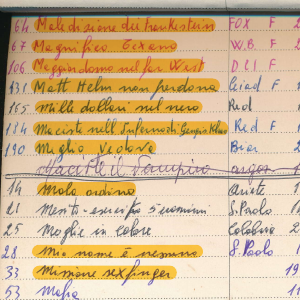 64 Maledizione dei Frankestein FOX F 2
67 Magnifico Texano W.B. F 2
106 Maggiordomo nel far West D.C.I F
131 Matt Helm non perdona Ceiad F 1
165 Mille dollari nel nero Red
184 Maciste nell'Inferno di Gengis Khan Red F
190 Moglie Vedova Bear 2
Maciste il Vampiro
14 Mala ordina Ariete 1
21 Mento esercito 5 uomini S. Paolo 1
25 Moglie in calore Colabria 2
28 Mio nome è nessuno S. Paolo
33 Missione sexfinger 19
53 Mafia 11